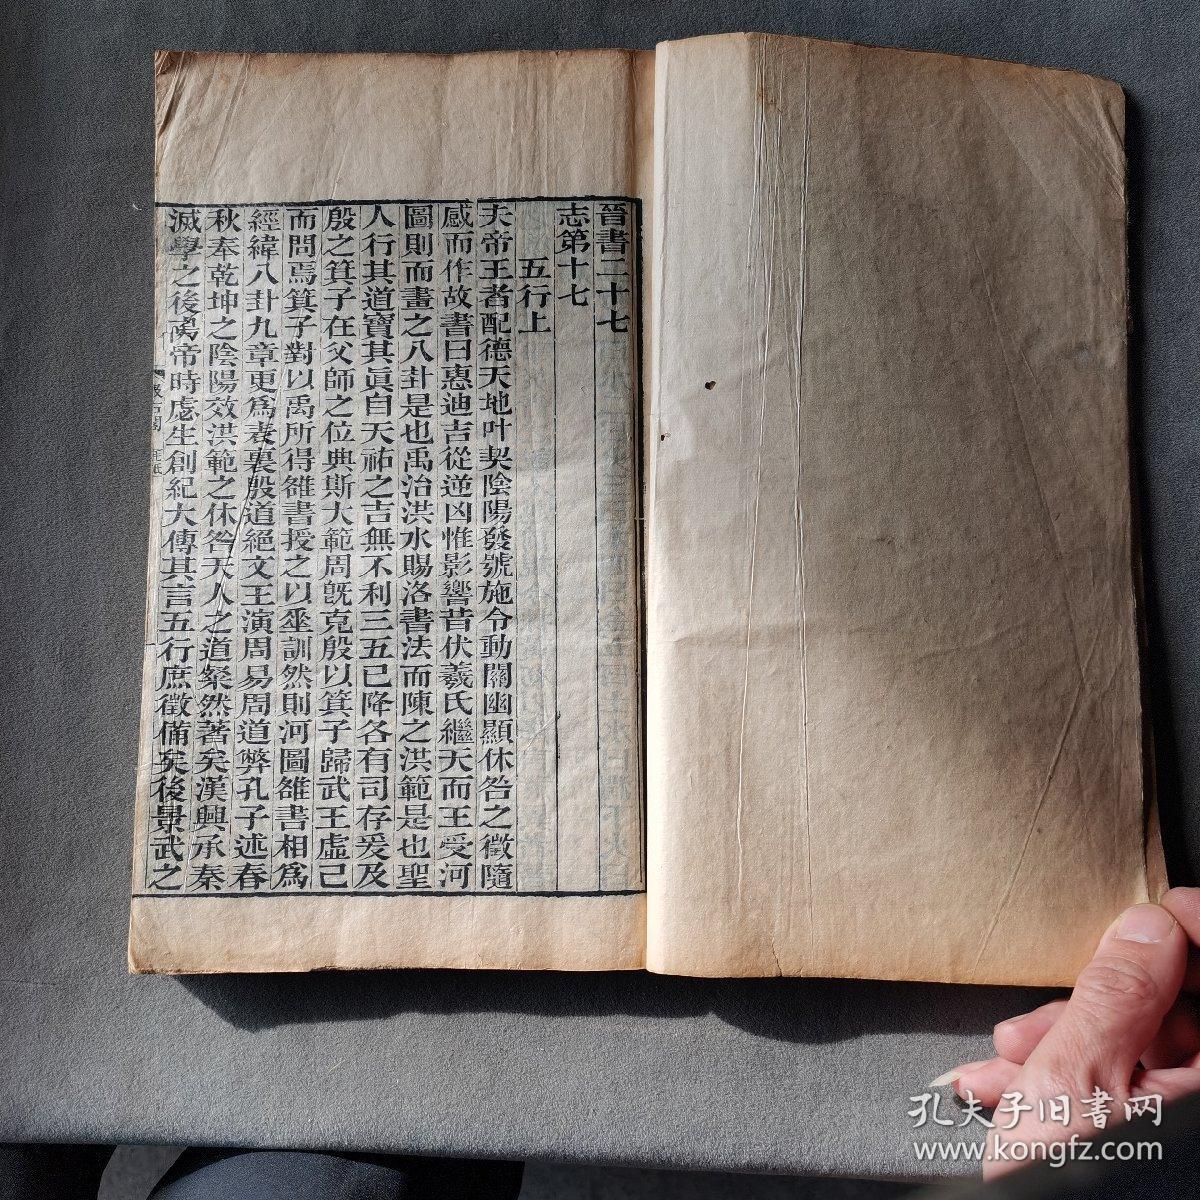 晉書二十七
志第十七
五行上
夫帝王者配德天地叶契陰陽發號施令動關幽顯休咎之徵隨
感而作故書曰惠迪吉從逆凶惟影響昔伏羲氏繼天而王受河
圖則而畫之八卦是也禹治洪水賜洛書法而陳之洪範是也聖
人行其道寶其眞自天祐之吉無不利三五已降各有司存爰及
殷之箕子在父師之位典斯大範周旣克殷以箕子歸武王虛己
而問焉箕子對以禹所得雒書授之以垂訓然則河圖雒書相爲
經緯八卦九章更爲表裏殷道絕文王演周易周道弊孔子述春
秋奉乾坤之陰陽效洪範之休咎天人之道粲然著矣漢興承秦
滅學之後文帝時虙生創紀大傳其言五行庶徵備矣後景武之
汲古閣
孔夫子旧书网
www.kongfz.com